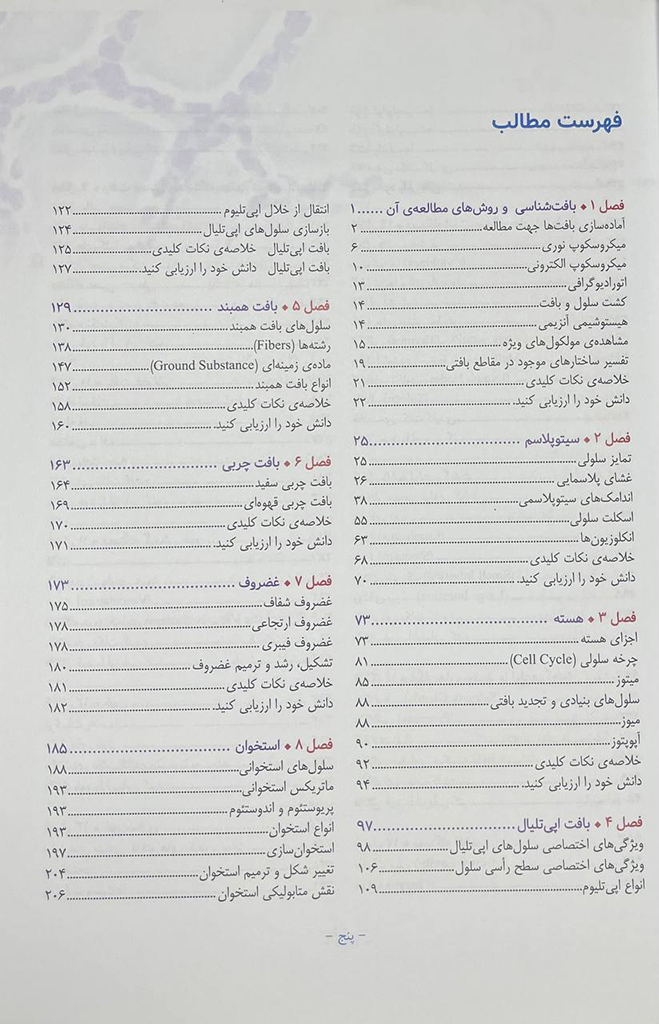 فهرست مطالب
فصل ۱ • بافت‌شناسی و روش‌های مطالعه‌ی آن ......۱
آماده‌سازی بافت‌ها جهت مطالعه......۲
میکروسکوپ نوری......۶
میکروسکوپ الکترونی......۱۰
اتورادیوگرافی......۱۳
کشت سلول و بافت......۱۴
هیستوشیمی آنزیمی......۱۴
مشاهده‌ی مولکول‌های ویژه......۱۵
تفسیر ساختارهای موجود در مقاطع بافتی......۱۹
خلاصه‌ی نکات کلیدی......۲۱
دانش خود را ارزیابی کنید.......۲۲
فصل ۲ • سیتوپلاسم ......۲۵
تمایز سلولی......۲۵
غشای پلاسمایی......۲۶
اندامک‌های سیتوپلاسمی......۳۸
اسکلت سلولی......۵۵
انکلوزیون‌ها......۶۳
خلاصه‌ی نکات کلیدی......۶۸
دانش خود را ارزیابی کنید.......۷۰
فصل ۳ • هسته ......۷۳
اجزای هسته......۷۳
چرخه سلولی (Cell Cycle)......۸۱
میتوز......۸۵
سلول‌های بنیادی و تجدید بافتی......۸۸
میوز......۸۸
آپوپتوز......۹۰
خلاصه‌ی نکات کلیدی......۹۲
دانش خود را ارزیابی کنید.......۹۴
فصل ۴ • بافت اپی‌تلیال......۹۷
ویژگی‌های اختصاصی سلول‌های اپی‌تلیال......۹۸
ویژگی‌های اختصاصی سطح رأسی سلول......۱۰۶
انواع اپی‌تلیوم......۱۰۹
انتقال از خلال اپی‌تلیوم ......۱۲۲
بازسازی سلول‌های اپی‌تلیال......۱۲۴
بافت اپی‌تلیال خلاصه‌ی نکات کلیدی......۱۲۵
بافت اپی‌تلیال دانش خود را ارزیابی کنید.......۱۲۷
فصل ۵ • بافت همبند ......۱۲۹
سلول‌های بافت همبند......۱۳۰
رشته‌ها (Fibers)......۱۳۸
ماده‌ی زمینه‌ای (Ground Substance)......۱۴۷
انواع بافت همبند......۱۵۲
خلاصه‌ی نکات کلیدی......۱۵۸
دانش خود را ارزیابی کنید.......۱۶۰
فصل ۶ • بافت چربی ......۱۶۳
بافت چربی سفید......۱۶۴
بافت چربی قهوه‌ای......۱۶۹
خلاصه‌ی نکات کلیدی......۱۷۰
دانش خود را ارزیابی کنید.......۱۷۱
فصل ۷ • غضروف ......۱۷۳
غضروف شفاف......۱۷۵
غضروف ارتجاعی......۱۷۸
غضروف فیبری......۱۷۸
تشکیل، رشد و ترمیم غضروف......۱۸۰
خلاصه‌ی نکات کلیدی......۱۸۱
دانش خود را ارزیابی کنید.......۱۸۲
فصل ۸ • استخوان ......۱۸۵
سلول‌های استخوانی......۱۸۸
ماتریکس استخوانی......۱۹۳
پریوستئوم و اندوستئوم......۱۹۳
انواع استخوان......۱۹۳
استخوان‌سازی......۱۹۷
تغییر شکل و ترمیم استخوان......۲۰۴
نقش متابولیکی استخوان......۲۰۶
- پنج -